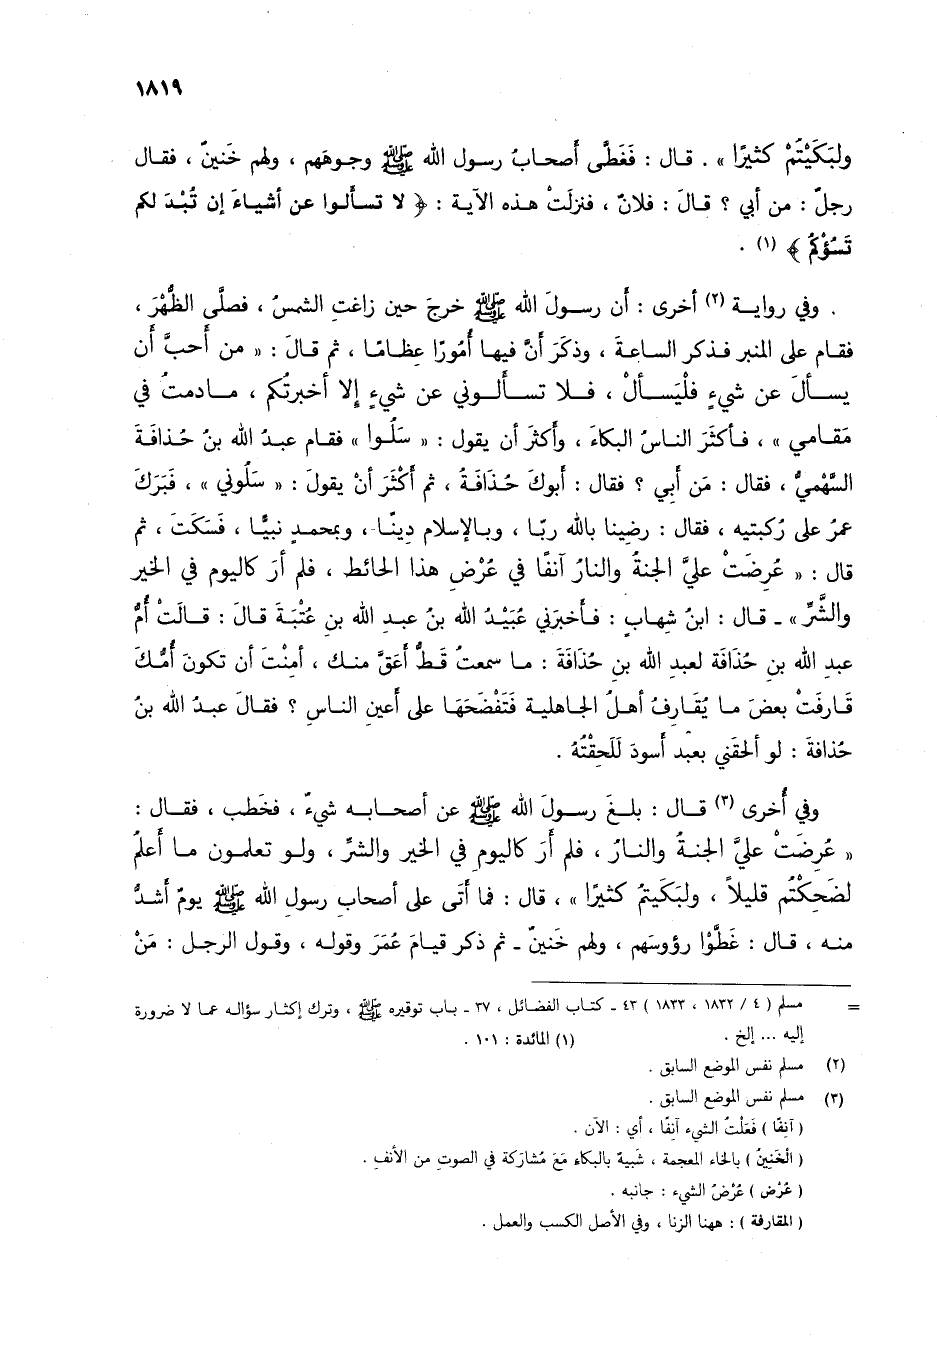 ١٨١٩
ولبَكَيْتُمْ كثيرًا » . قال : فَغَطَّى أَصحابُ رسول الله ﷺ وجوهَهم ، ولهم خَنينٌ ، فقال
رجلٌ : من أبي ؟ قالَ : فلانٌ ، فنزلَتْ هذه الآية : ﴿ لا تسألوا عن أشياءَ إن تُبْدَ لكم
تَسُؤْكُمْ ﴾ (١) .
وفي رواية (٢) أخرى : أن رسولَ الله ﷺ خرجَ حين زاغتِ الشمسُ ، فصلَّى الظُّهْرَ ،
فقام على المنبر فذكر الساعةَ ، وذكَرَ أنَّ فيها أُمُورًا عِظامًا ، ثم قالَ : « من أَحبَّ أَن
يسألَ عن شيءٍ فلْيَسألْ ، فلا تسألوني عن شيءٍ إلا أخبرتُكم ، مادمتُ في
مَقامي » ، فأكثَرَ الناسُ البكاءَ ، وأكثرَ أن يقول : « سَلُوا » فقام عبدُ الله بنُ حُذافَةَ
السَّهْميُّ ، فقال : مَن أَبي ؟ فقال : أبوكَ حُذَافَةُ ، ثم أكْثَرَ أنْ يقولَ : « سَلُوني » ، فَبَرَكَ
عمرُ على رُكبتيه ، فقال : رضينا بالله ربًا ، وبالإسلام دِينًا ، وبمحمدٍ نبيًّا ، فَسَكَتَ ، ثم
قال : « عُرضَتْ عليَّ الجنةُ والنارُ آنفًا في عُرْضِ هذا الحائط ، فلم أرَ كاليوم في الخيرِ
والشَّرِّ » ـ قال : ابنُ شِهابٍ : فأخبرَني عُبَيْدُ الله بنُ عبدِ الله بنِ عُتْبَةَ قالَ : قالَتْ أُمُّ
عبدِ الله بنِ حُذَافَة لعبدِ الله بنِ حُذَافَةَ : ما سمعتُ قَطُّ أَعَقَّ منك ، أمِنْتَ أن تكونَ أُمُّكَ
قَارفَتْ بعضَ ما يُقَارِفُ أهلُ الجاهلية فَتَفْضَحَهَا على أَعينِ الناسِ ؟ فقالَ عبدُ الله بنُ
حُذافةَ : لو ألحقَني بعبد أسودَ لَلَحِقْتُهُ .
وفي أُخرى (٣) قال : بلغَ رسولَ الله ﷺ عن أصحابه شيءٌ ، فخَطب ، فقال :
« عُرِضَتْ عليَّ الجنةُ والنارُ ، فلم أَرَ كاليوم في الخيرِ والشرِّ ، ولو تعلمون ما أَعلمُ
لضَحِكْتُم قليلاً ، ولبَكَيتُم كثيرًا » ، قال : فما أتَى على أصحابِ رسول الله ﷺ يومٌ أشدُّ
منه ، قال : غَطَّوْا رؤوسَهم ، ولهم خَنينٌ ـ ثم ذكر قيامَ عُمَرَ وقولَه ، وقول الرجل : مَنْ
= مسلم ( ٤ / ١٨٣٢ ، ١٨٣٣ ) ٤٣ ـ كتاب الفضائل ، ٣٧ ـ باب توقيره ﷺ ، وترك إكثار سؤاله عما لا ضرورة
إليه ... إلخ . (١) المائدة : ١٠١ .
(٢) مسلم نفس الموضع السابق .
(٣) مسلم نفس الموضع السابق .
( آنِفًا ) فَعَلْتُ الشيء آنفًا ، أي : الآن .
( الْخَنِينُ ) بالخاء المعجمة ، شَبيهٌ بالبكاء مَعَ مُشاركة في الصوت من الأنف .
( عُرْض ) عُرْضُ الشيء : جانبه .
( المقارفة ) : ههنا الزنا ، وفي الأصل الكسب والعمل .